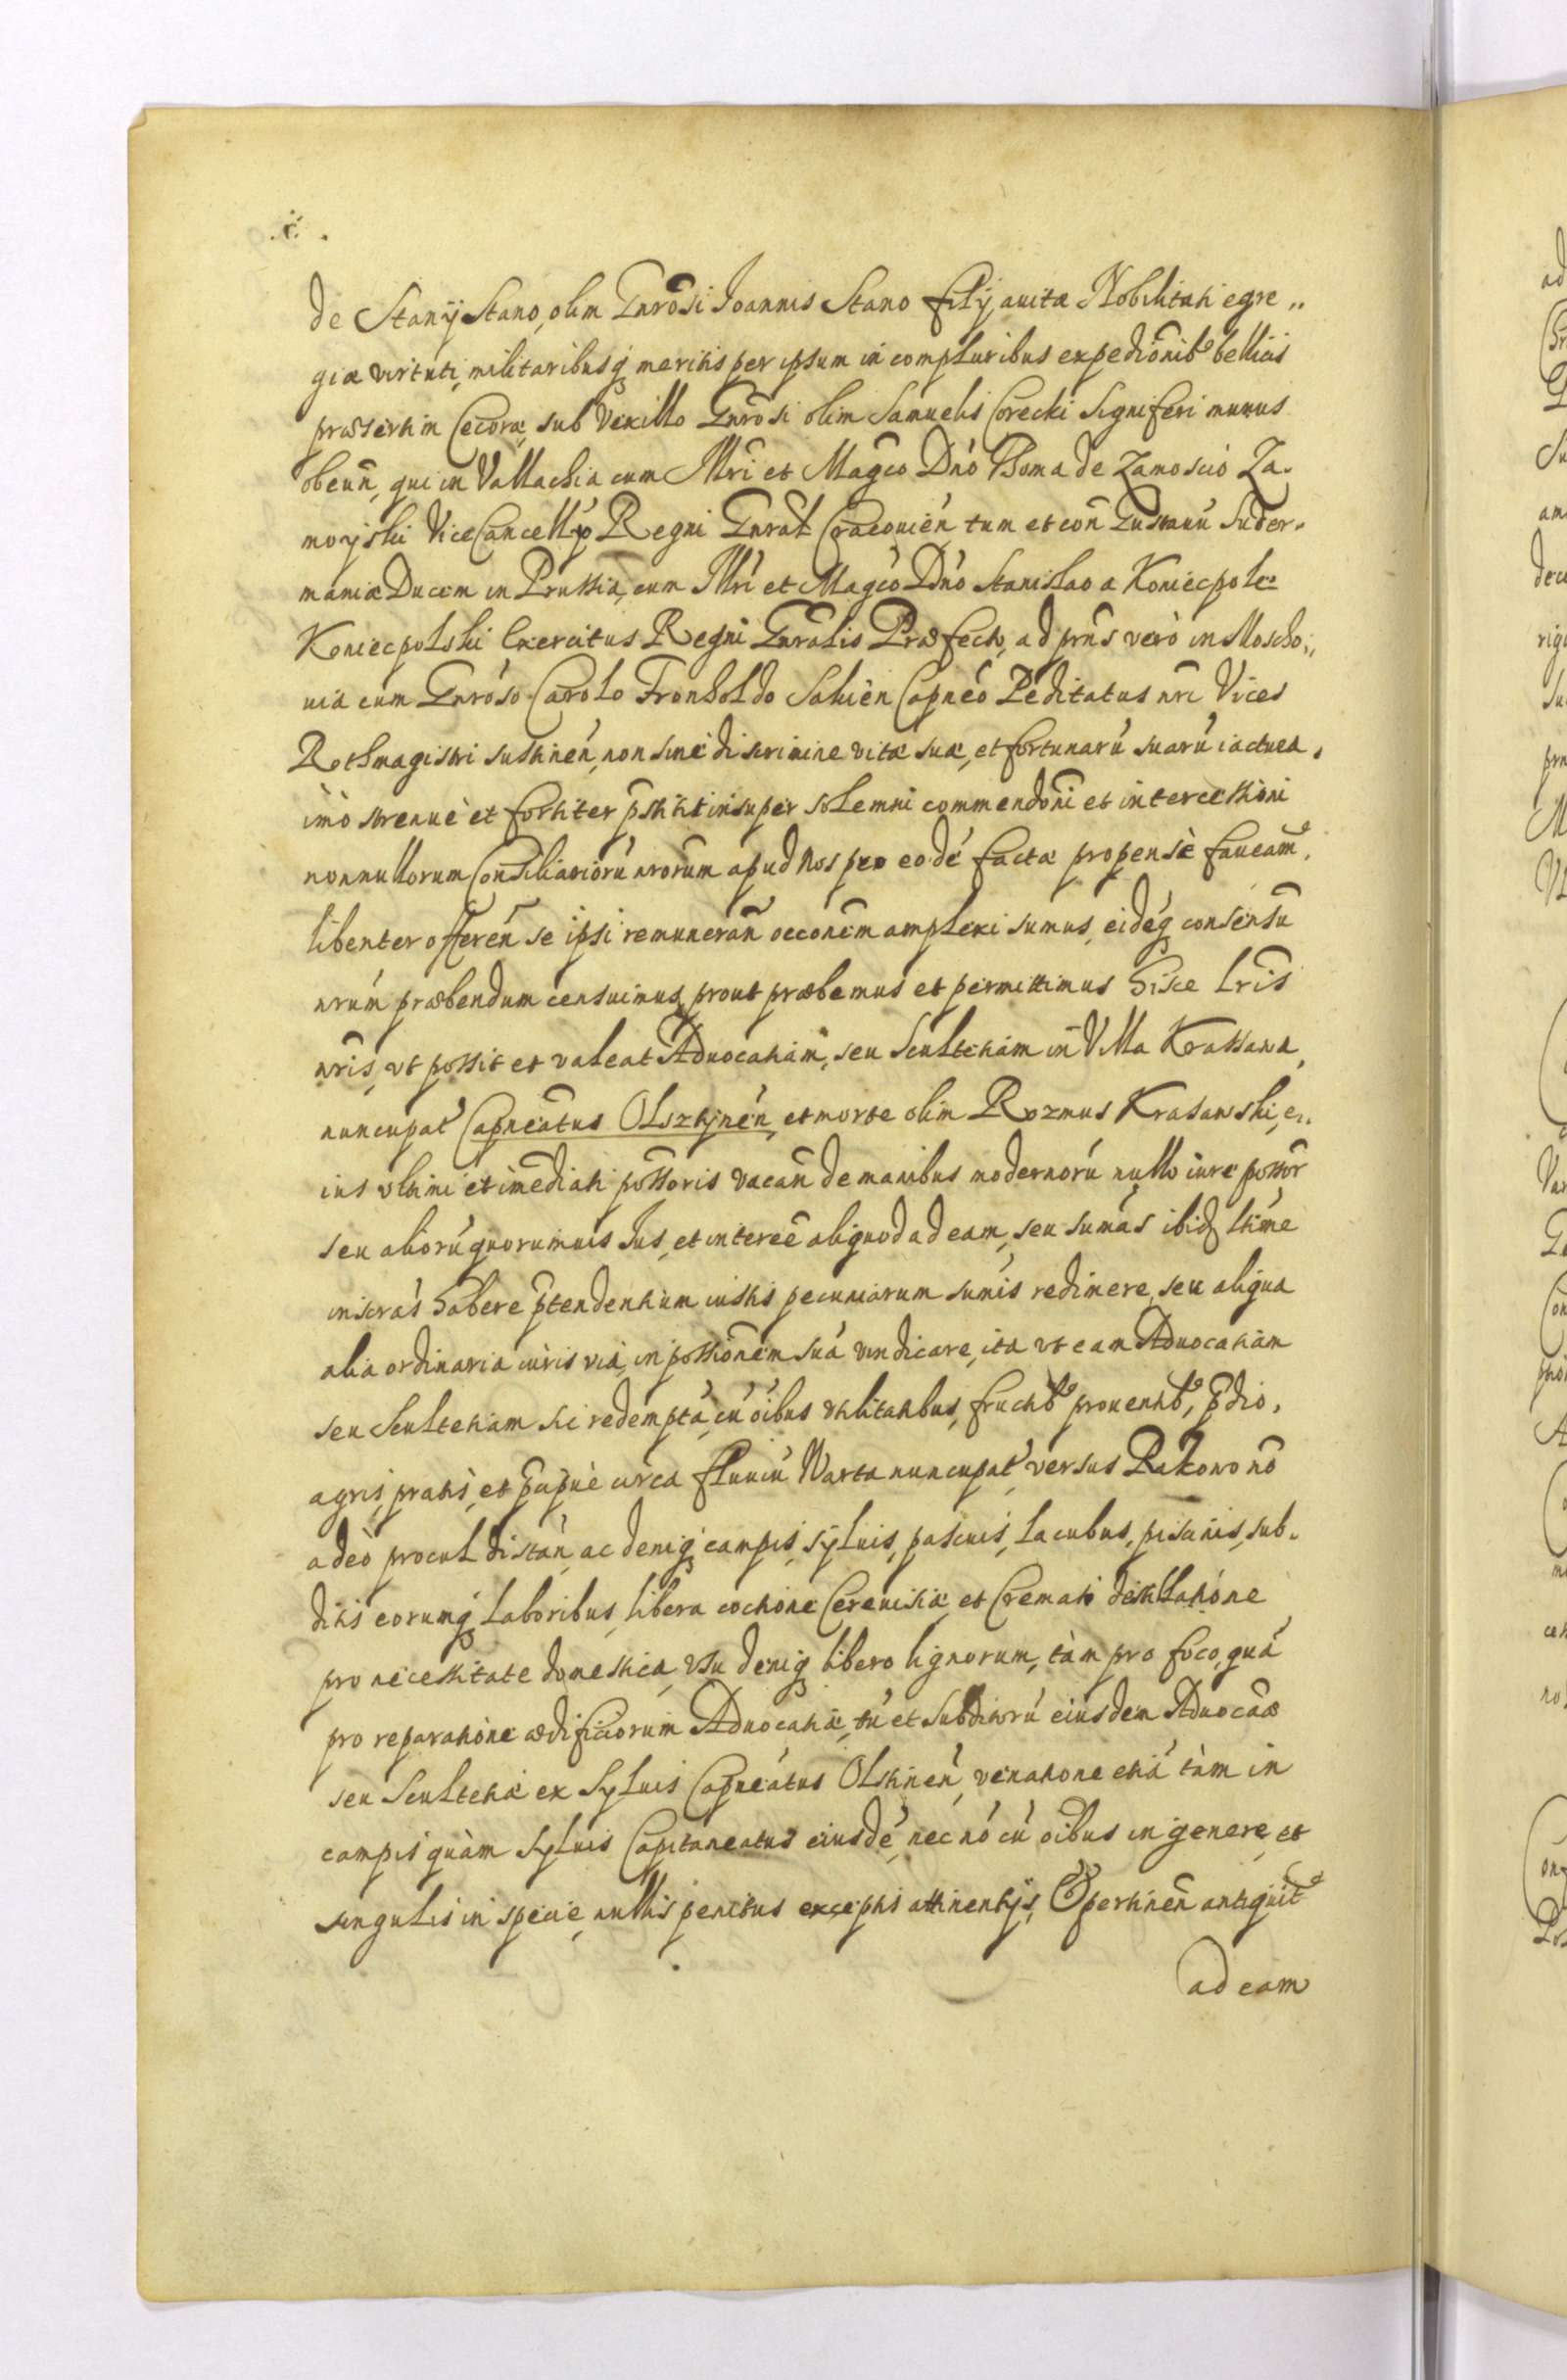 de Stanÿ Stano, olim Gnrosi Joannis Stano filÿ auitæ Nobilitati egre„
giæ virtuti, militaribusq meritis per ipsum in compluribus expedionib bellicis
præsertim Cecoræ, sub Vexillo Gnrosi olim Samuelis Corecki Signiferi munus
obeun, qui in Vallachia cum Illri et Magco Dno Thoma de Zamoscio Za-
moyski ViceCancell Regni Gnral Cracouien, tum et con Gustauu Suder-
maniæ Ducem in Prussia, cum Illri et Magco Dno Stanislao a Koniecpole
Koniecpolski Exercitus Regni Gnralis Præfecto, ad prns verò in Moscho„
uia cum Gnroso Carolo Fronholdo Salucien Capneo Peditatus nri Vices
Rothmagistri sustinen, non sine discrimine vitæ suæ, et fortunarú suarú iactura,
imò strenuè et fortiter pstitit insuper solemni commendoni et intercessioni
nonnullorum Consiliariorú nrorum apud Nos pro eodé factæ propensè faueam,
libenter offeren se ipsi remuneran occonem amplexi sumus, eidéq consensu
nrum præbendum censuimus, prout præbemus et permittimus hisce Lris
nris, vt possit et valeat Aduocatiam, seu Scultetiam in Villa Krassawa,
nuncupat Capneatus Olsztynen, et morte olim Rozmus Krasawski, e„
ius vltimi et imediati possoris vacan de manibus modernorú nullo iure possor
seu aliorú quorumuis Jus, et interee aliquod ad eam, seu sumas ibid ltime
inscras habere ptendentium iustis pecuniarum sumis redimere, seu aliqua
alia ordinaria iuris via, in possionem suá vindicare, ita vt eam Aduocatiam
seu Scultetiam sic redemptá, cú oibus vtilitatibus, fructib prouentib, pdio,
agris, pratis, et pcipuè circa fluuiú Warta nuncupat versus Rakowo nó
adeò procul distan, ac deniq campis, syluis, pascuis, lacubus, piscinis, sub-
ditis eorumq laboribus, libera coctione Cereuisiæ et Cremati destillatione
pro necessitate domestica, vsu deniq libero lignorum, tàm pro foco, quá
pro reparatione ædificiorum Aduocatiæ, tú et subditorú eiusdem Aduocaæ
seu Scultetiæ ex Syluis Capneatus Olstinen, venatione etiá tàm in
campis quàm Syluis Capitaneatus eiusdé, nec nó cú oibus in genere, et
singulis in specie, nullis penitus exceptis attinentijs, pertinen antiquit
ad eam